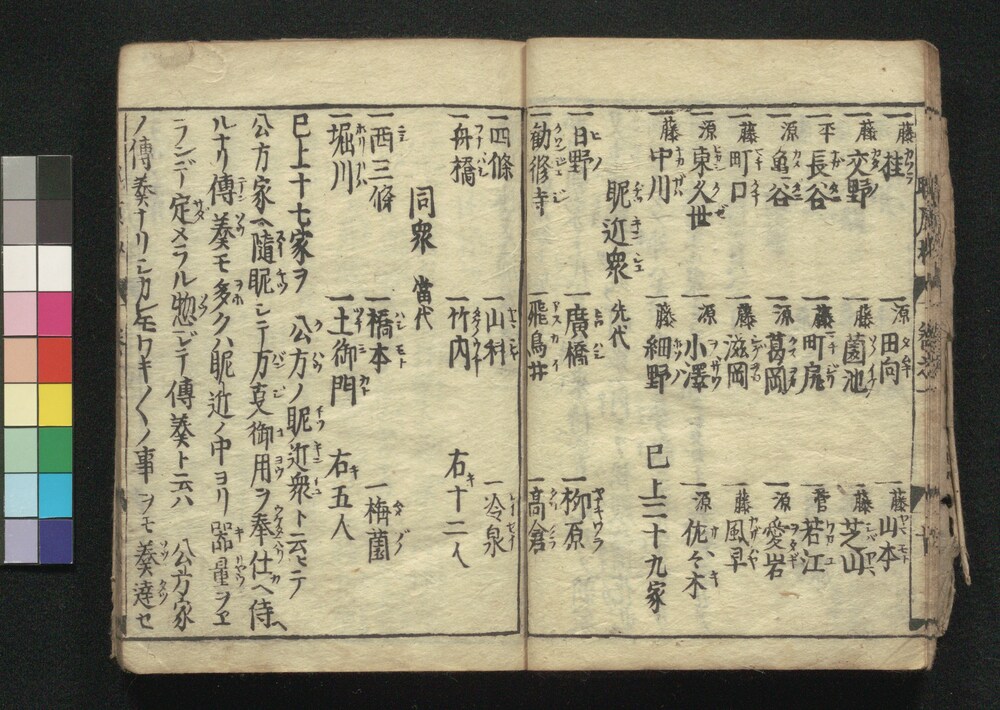 一藤桂 一源田向 一藤山本
一藤交野 一藤薗池 一藤芝山
一平長谷 一藤町尻 一菅若江
一源亀谷 一源葛岡 一源愛宕
一藤町口 一藤滋岡 一藤風早
一源東久世 一源小澤 一源佐々木
一藤中川 一藤細野 已上二十九家
昵近衆 先代
一日野 一廣橋 一柳原
一勧修寺 一飛鳥井 一高倉
一四條 一山科 一冷泉
一舟橋 一竹内 右十二人
同衆 當代
一西三條 一橋本 一梅薗
一堀川 一土御門 右五人
已上十七家ヲ 公方ノ昵近衆ト云モテ
公方家ヘ隨昵シテ万叓御用ヲ奉仕ヘ侍ヘ
ルナリ傳奏モ多クハ昵近ノ中ヨリ器量ヲヱ
ランデ定メラル惣ジテ傳奏ト云ハ 公方家
ノ傳奏ナリシカレモワキ〳〵ノ事ヲモ奏達セ